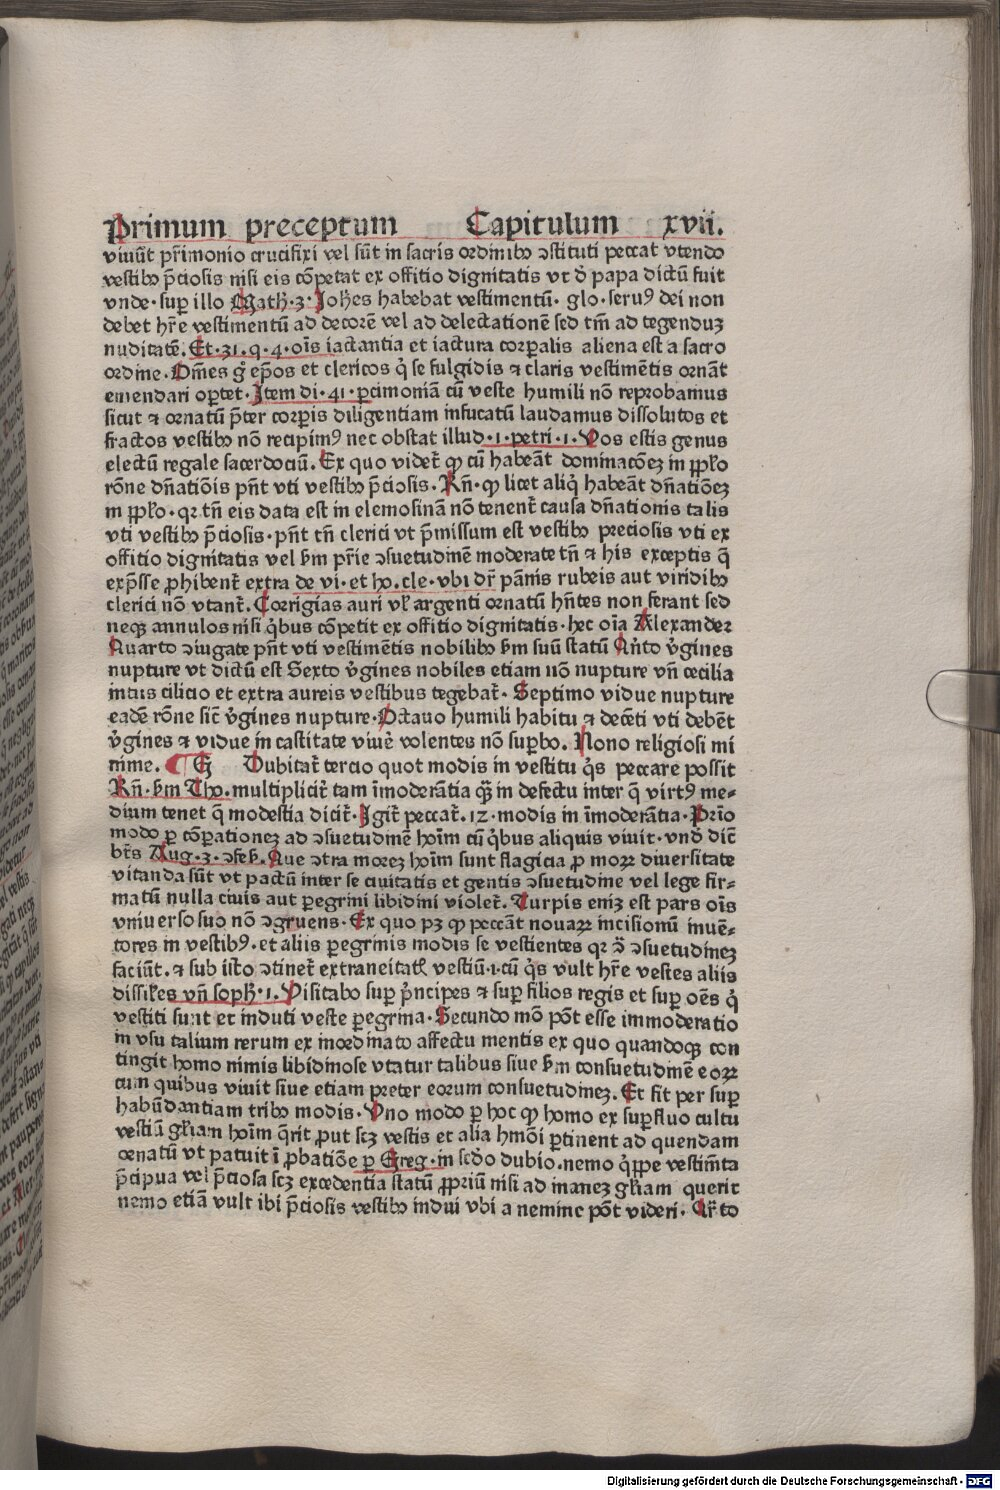 Primum preceptum Capitulum xvii.
viuũt pr̃imonio crucifixi vel sũt in sacris ordinibꝫ ꝯstituti peccãt vtendo
vestibꝫ p̃ciosis nisi eis cõpetat ex offitio dignitatis vt ð papa dictũ fuit
vnde· suꝑ illo Math̃·3· Joh̃es habebat vestimentũ· glo· seruꝰ dei non
debet hr̃e vestimentũ ad decorẽ vel ad delectationẽ sed tm̃ ad tegenduꝫ
nuditatẽ. Et·31·q·4·oĩs iactantia et iactura corꝑalis aliena est a sacro
ordine. Om̃es g̊ ep̃os et clericos q̇ se fulgidis ⁊ claris vestimẽtis ornãt
emendari oꝑtet· Jtem di·41·ꝑcimoniã cũ veste humili nõ reprobamus
sicut ⁊ ornatũ p̃ter corꝑis diligentiam infucatũ laudamus dissolutos et
fractos vestibꝫ nõ recipimꝰ nec obstat illud·1·petri·1·Vos estis genus
electũ regale sacerdociũ. Ex quo videt̃ ꝙ cũ habeãt dominacõeꝫ in ꝓp̃lo
rõne dñatiõis pñt vti vestibꝫ p̃ciosis. Rñ· ꝙ licet aliq̇ habeãt dñatiõeꝫ
in ꝓp̃lo· qꝛ tñ eis data est in elemosinã nõ tenent̃ causa dñationis talis
vti vestibꝫ p̃ciosis·pñt tñ clerici vt p̃missum est vestibꝫ preciosis vti ex
offitio dignitatis vel ẜm pr̃ie ꝯsuetudinẽ moderate tñ ⁊ his exceptis q̃
exp̃sse ꝓhibent̃ extra de vi·et ho.cle·vbi dr̃ pãnis rubeis aut viridibꝫ
clerici nõ vtant̃. Corrigias auri vl̕ argenti ornatũ hñtes non ferant sed
neqꝫ annulos nisi q̇bus cõpetit ex offitio dignitatis·hec oĩa Alexander
Quarto ꝯiugate pñt vti vestimẽtis nobilibꝫ ẜm suũ statũ Qñto v̇gines
nupture vt dictũ est Sexto v̇gines nobiles etiam nõ nupture vñ cecilia
intus cilicio et extra aureis vestibus tegebat̃· Septimo vidue nupture
eadẽ rõne sic̃ v̇gines nupture·Octauo humili habitu ⁊ decẽti vti debẽt
v̇gines ⁊ vidue in castitate viuẽ volentes nõ suꝑbo. Nono religiosi mi
nime. ¶ G Dubitat̃ tercio quot modis in vestitu q̇s peccare possit
Rñ·ẜm Tho.multiplicit̃ tam ĩmoderãtia q̃ꝫ in defectu inter q̃ virtꝰ me-
dium tenet q̃ modestia dicit̃·Jgit̃ peccat̃.12·modis in ĩmoderãtia·Prĩo
modo ꝑ cõꝑationeꝫ ad ꝯsuetudinẽ hoĩm cũ q̇bus aliquis viuit·vnð dic̃
bt̃s Aug·3·ꝯfeß.Que ꝯtra moreꝫ hoĩm sunt flagicia ꝓ moꝝ diuersitate
vitanda sũt vt pactũ inter se ciuitatis et gentis ꝯsuetudine vel lege fir-
matũ nulla ciuis aut ꝑegrini libidini violet̃. Turpis eniꝫ est pars oĩs
vniuerso suo nõ ꝯgruens·Ex quo pꝫ ꝙ peccãt nouaꝝ incisionũ inuẽ-
tores in vestibꝰ.et aliis ꝑegrinis modis se vestientes qꝛ ꝯ̃ ꝯsuetudineꝫ
faciũt.⁊ sub isto ꝯtinet̃ extraneitatẽ vestiũ·i·cũ q̇s vult hr̃e vestes aliis
dissil̕es vñ soph̕·1·Visitabo suꝑ p̓ncipes ⁊ suꝑ filios regis et suꝑ oẽs q̇
vestiti sunt et induti veste ꝑegrina·Secundo mõ põt esse immoderatio
in vsu talium rerum ex inordinato affectu mentis ex quo quandoqꝫ con
tingit homo nimis libidinose vtatur talibus siue ẜm consuetudinẽ eoꝝ
cum quibus viuit siue etiam preter eorum consuetudineꝫ. Et fit per suꝑ
habũdantiam tribꝫ modis·Vno modo ꝑ hoc ꝙ homo ex suꝑfluo cultu
vestiũ gl̕iam hoĩm q̃rit ꝓut scꝫ vestis et alia hmõi ꝑtinent ad quendam
ornatũ vt patuit ĩ ꝓbatiõe ꝑ Greg·in scðo dubio.nemo q̇ꝑpe vestim̃ta
p̃cipua vel p̃ciosa scꝫ excedentia statũ ꝓpriũ nisi ad inaneꝫ gl̕iam querit
nemo etiã vult ibi p̃ciosis vestibꝫ indui vbi a nemine põt videri· Qr̃to